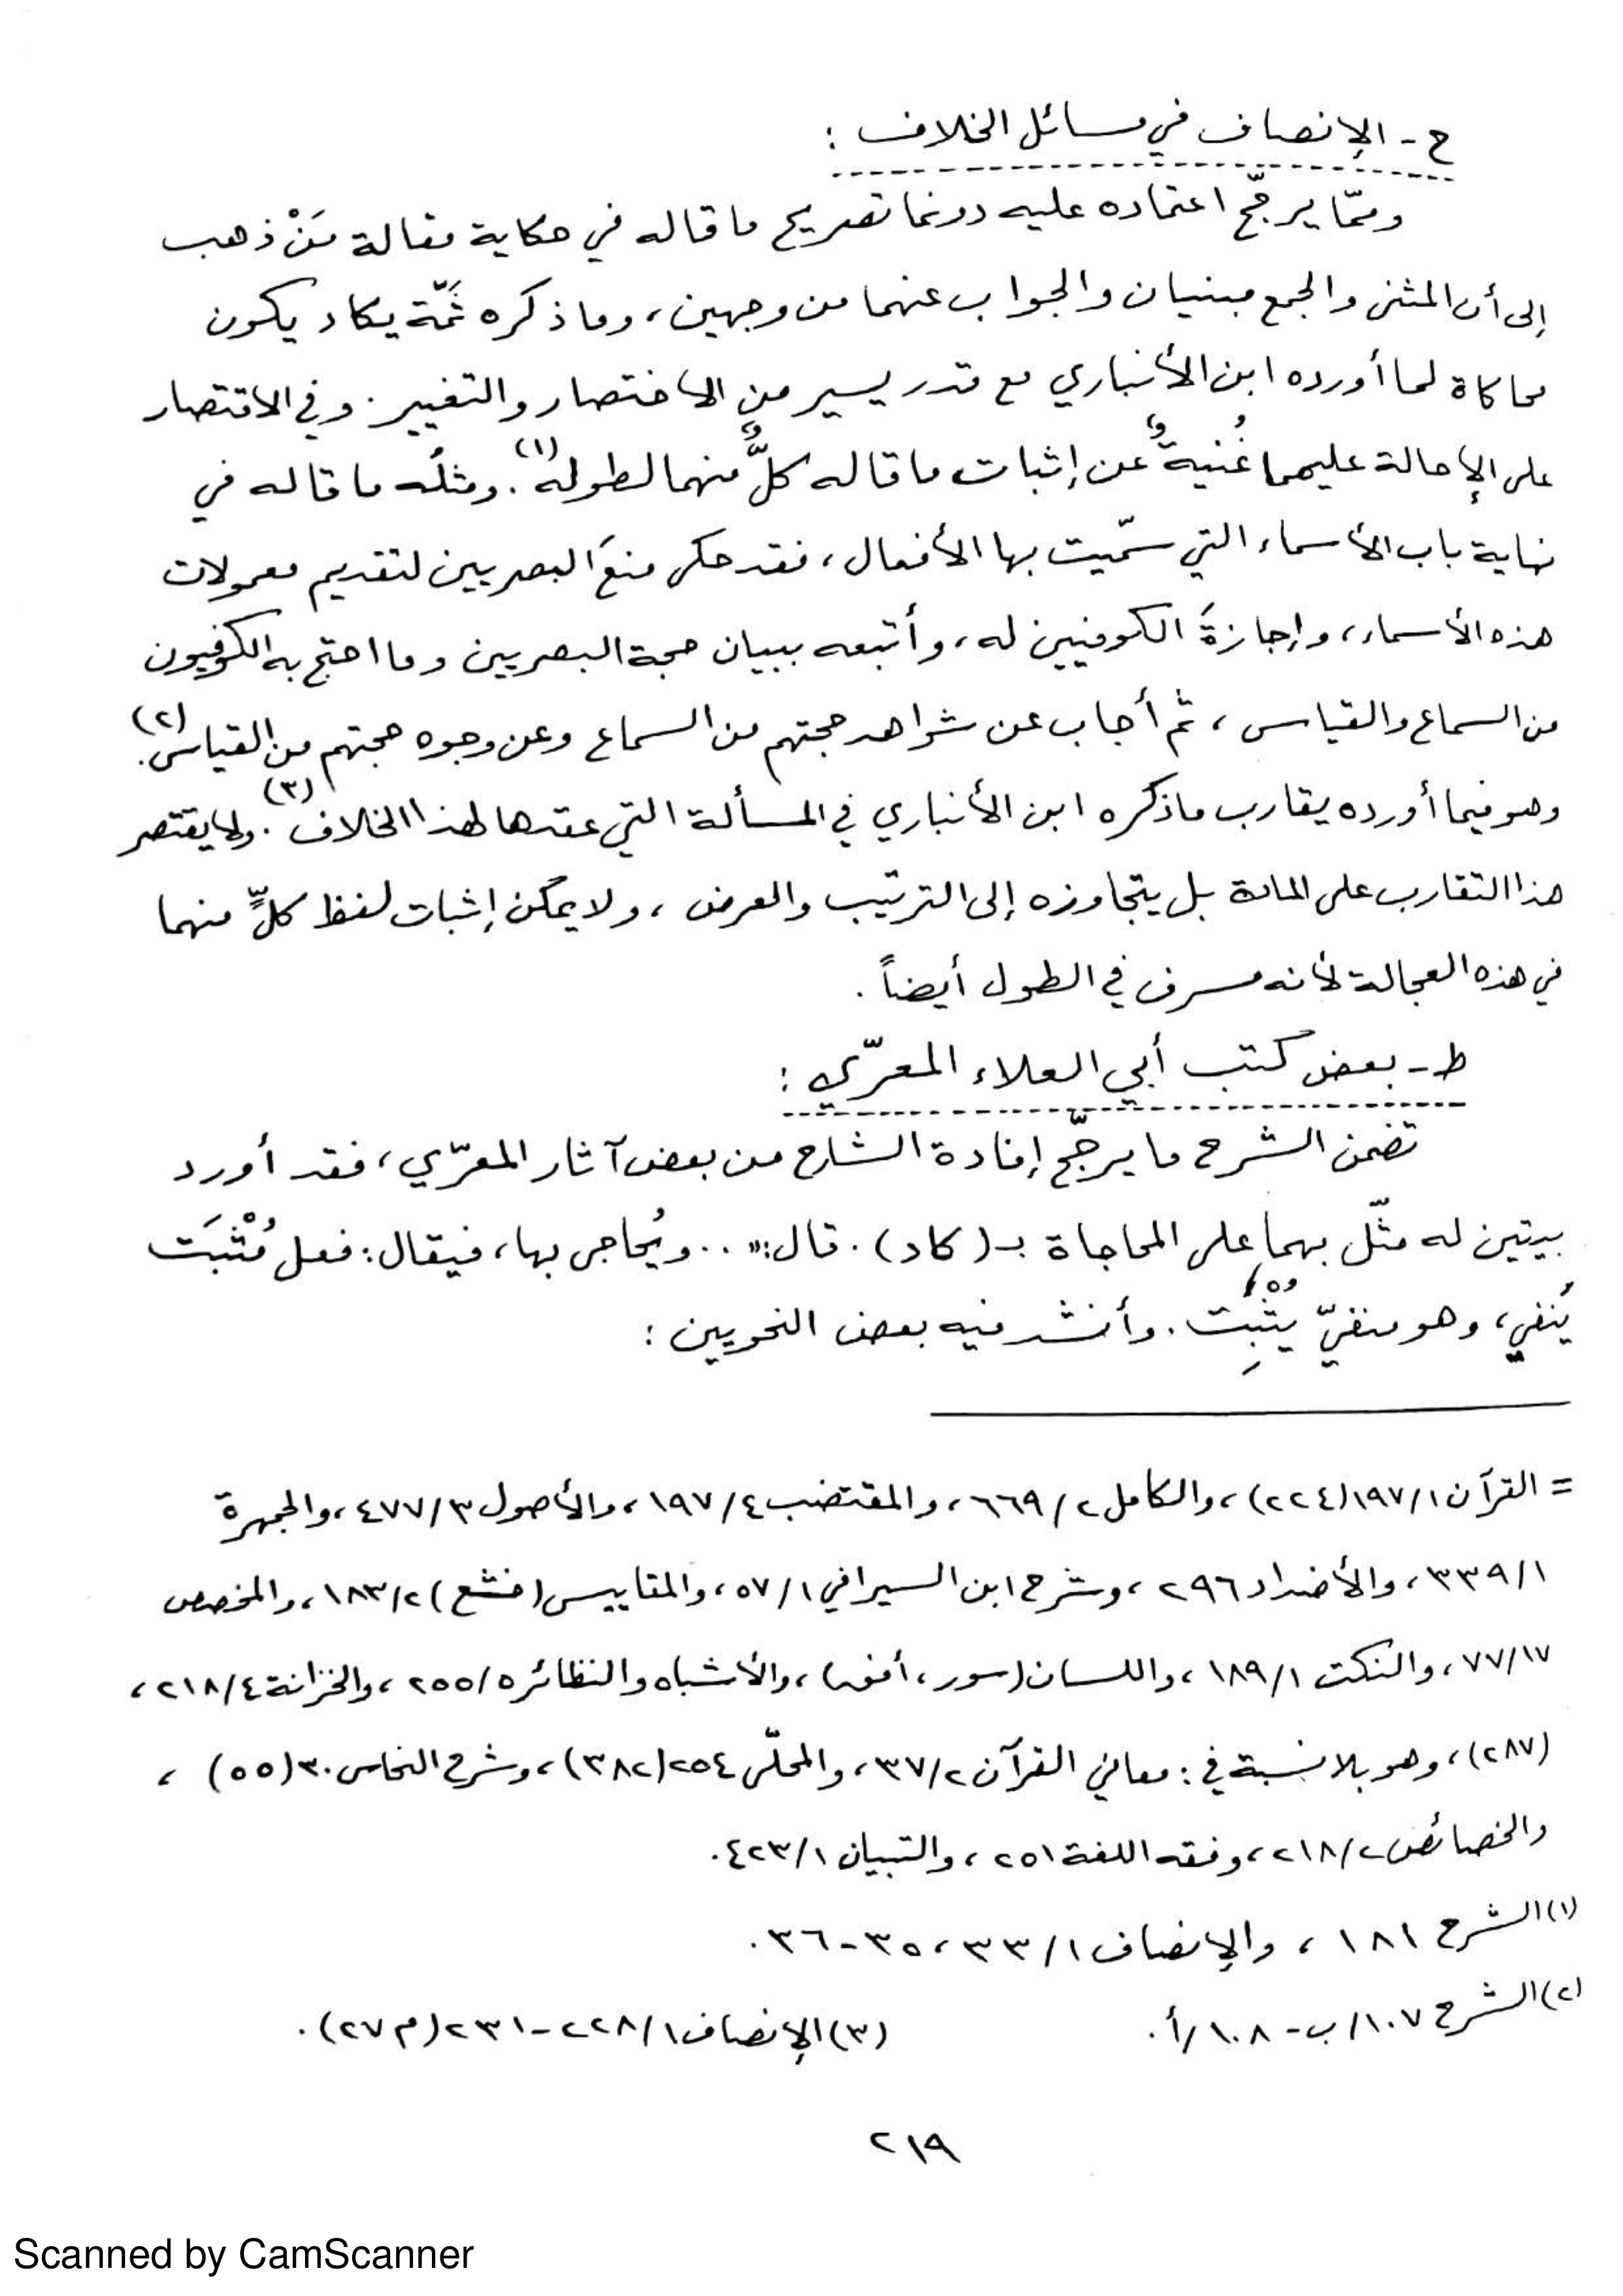 ح - الإنصاف في مسائل الخلاف :
وممّا يرجّح اعتماده عليه دونما تصريح ما قاله في حكاية مقالة مَنْ ذهب
إلى أن المثنى والجمع مبنيان والجواب عنهما من وجهين، وما ذكره ثَمّة يكاد يكون
محاكاة لما أورده ابن الأنباري مع قدر يسير من الاختصار والتغيير. وفي الاقتصار
على الإحالة عليهما غُنيةٌ عن إثبات ما قاله كلٌّ منهما لطوله(١). ومثلُه ما قاله في
نهاية باب الأسماء التي سمّيت بها الأفعال، فقد حكى منعَ البصريين لتقديم معمولات
هذه الأسماء، وإجازةَ الكوفيين له، وأتبعه ببيان حجة البصريين وما احتج به الكوفيون
من السماع والقياس، ثم أجاب عن شواهد حجتهم من السماع وعن وجوه حجتهم من القياس(٢).
وهو فيما أورده يقارب ما ذكره ابن الأنباري في المسألة التي عقدها لهذا الخلاف(٣). ولا يقتصر
هذا التقارب على المادة بل يتجاوزه إلى الترتيب والعرض، ولا يمكن إثبات لفظ كلٍّ منهما
في هذه العجالة لأنه مسرف في الطول أيضاً.
ط - بعض كتب أبي العلاء المعرّي :
تضمن الشرح ما يرجّح إفادة الشارح من بعض آثار المعرّي، فقد أورد
بيتين له مثّل بهما على المحاجاة بـ (كاد). قال: «.. ويُحاجى بها، فيقال: فعل مُثْبَت
يُنفي، وهو منفيّ يُثْبِت. وأنشد فيه بعض النحويين :
= القرآن ١/١٩٧(٢٢٤)، والكامل ٢/٦٦٩، والمقتضب ٤/١٩٧، والأصول ٣/٤٧٧، والجمهرة
١/٣٣٩، والأضداد ٢٩٦، وشرح ابن السيرافي ١/٥٧، والمقاييس (خشع) ٢/١٨٣، والمخصص
١٧/٧٧، والنكت ١/١٨٩، واللسان (سور، أفق)، والأشباه والنظائر ٥/٢٥٥، والخزانة ٤/٢١٨،
(٢٨٧)، وهو بلا نسبة في: معاني القرآن ٢/٣٧، والمحلّى ٢٥٤(٣٨٢)، وشرح النحاس ٣٠(٥٥)،
والخصائص ٢/٢١٨، وفقه اللغة ٢٥١، والتبيان ١/٤٢٣.
(١) الشرح ١٨١، والإنصاف ١/٣٣، ٣٥-٣٦.
(٢) الشرح ١٠٧/ب - ١٠٨/أ. (٣) الإنصاف ١/٢٢٨-٢٣١ (م ٢٧).
٢١٩
Scanned by CamScanner